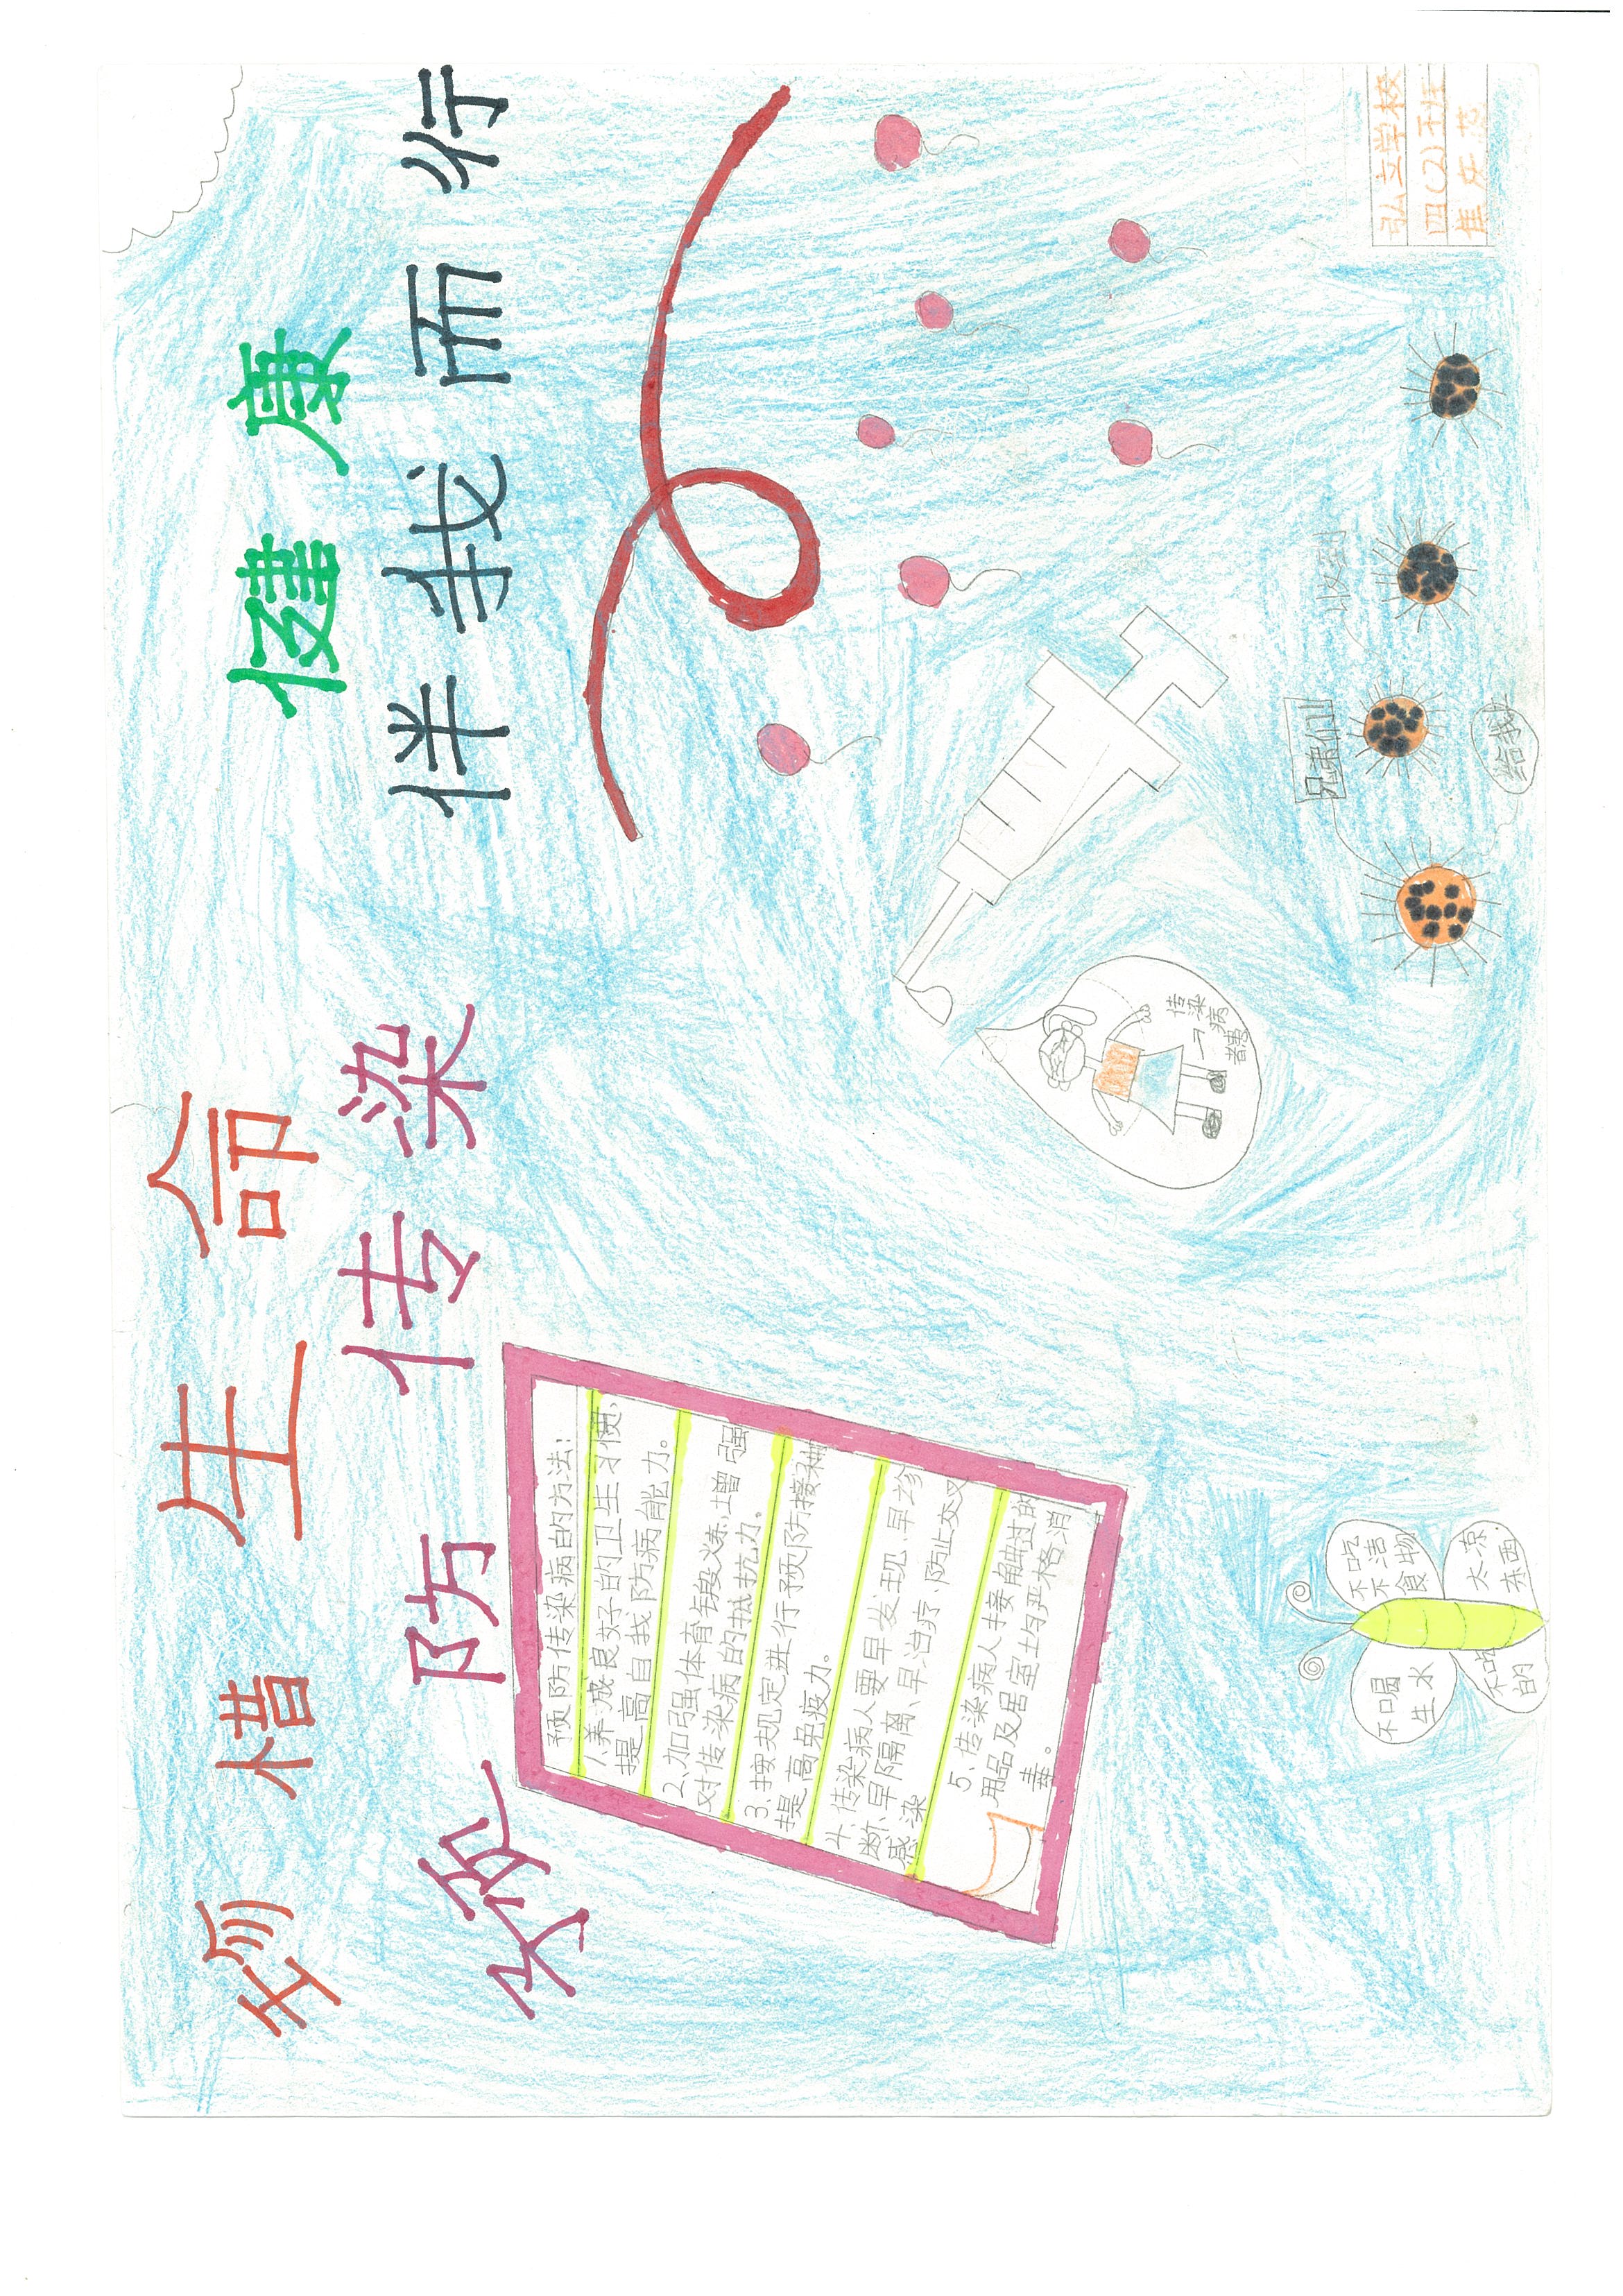 珍惜生命 健康
预防传染 伴我而行
预防传染病的方法:
1养成良好的卫生习惯,
提高自我防病能力。
2、加强体育锻炼,增强
对传染病的抵抗力。
3、按规定进行预防接种
提高免疫力。
4、传染病人要早发现、早诊
断、早隔离、早治疗、防止交叉
感染
5、传染病人接触过的
用品及居室均严格消
毒。
传染
病
兄弟们
收到
给我
不喝
生水
不吃
不洁
食物
不吃太凉
的东西
弘立学校
四(2)班